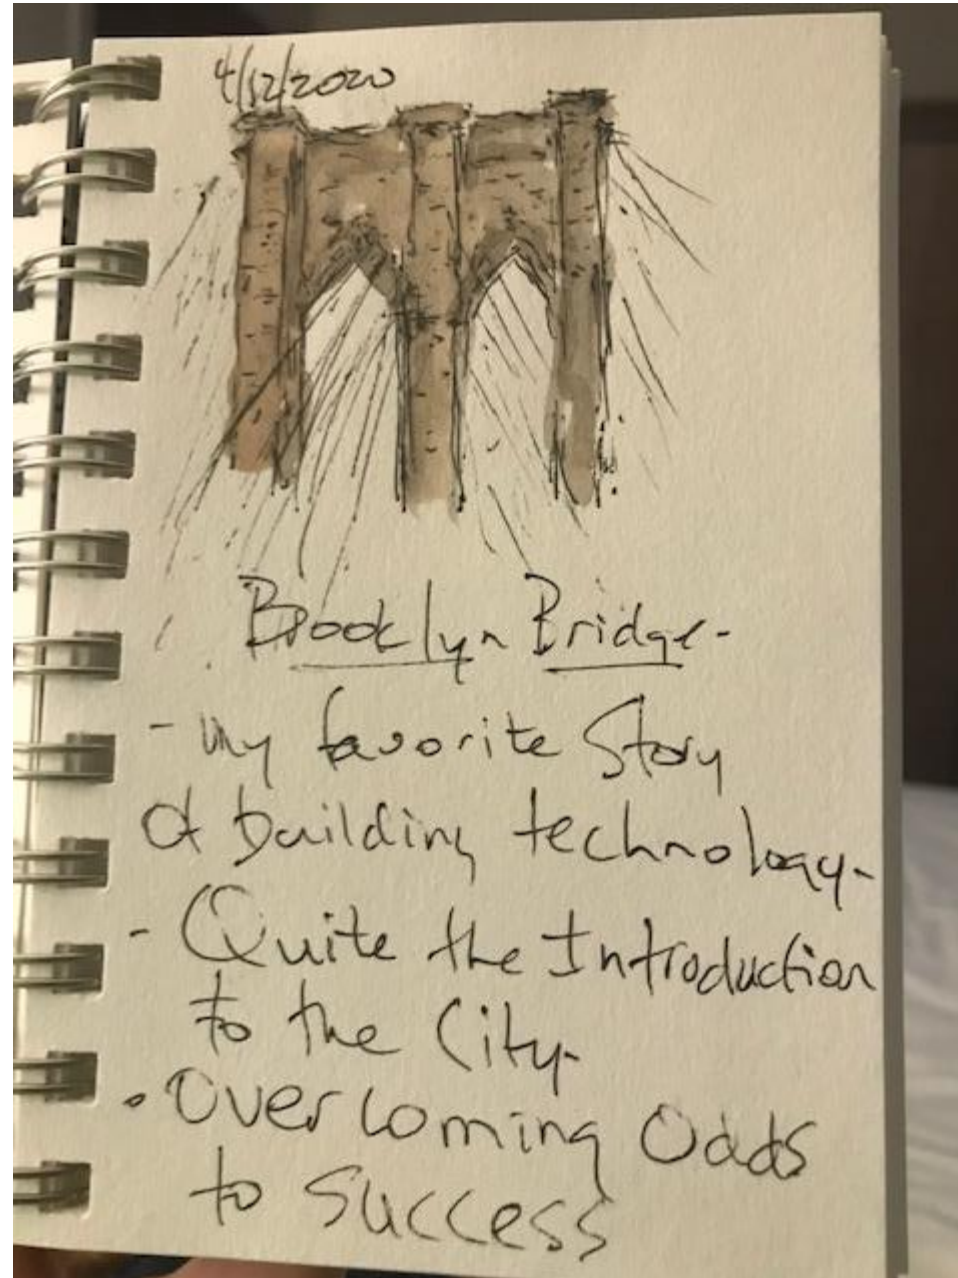 4/12/2020
Brooklyn Bridge-
- my favorite Story
of building technology-
- Quite the Introduction
to the City-
• Overcoming Odds
to Success